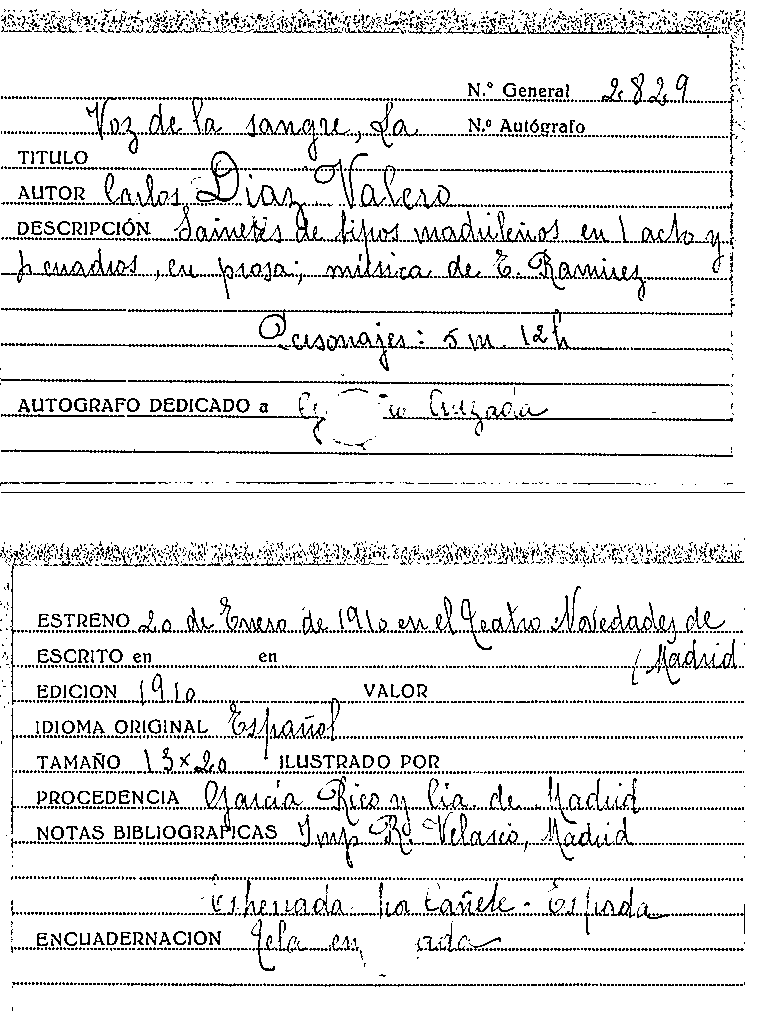 N.º General 2829
Voz de la sangre, La N.º Autógrafo
TITULO
AUTOR Carlos Diaz Valero
DESCRIPCIÓN Sainetes de tipos madrileños en 1 acto y
cuadros, en prosa; música de E. Ramirez
Personajes: 5 m. 12 h
AUTOGRAFO DEDICADO a
ESTRENO 20 de Enero de 1910 en el Teatro Novedades de
ESCRITO en en (Madrid
EDICION 1910 VALOR
IDIOMA ORIGINAL Español
TAMAÑO 13 x 20 ILUSTRADO POR
PROCEDENCIA García Rico y Cia de Madrid
NOTAS BIBLIOGRAFICAS Imp R. Velasco, Madrid
Estrenada por Cañete - Espada
ENCUADERNACION Tela